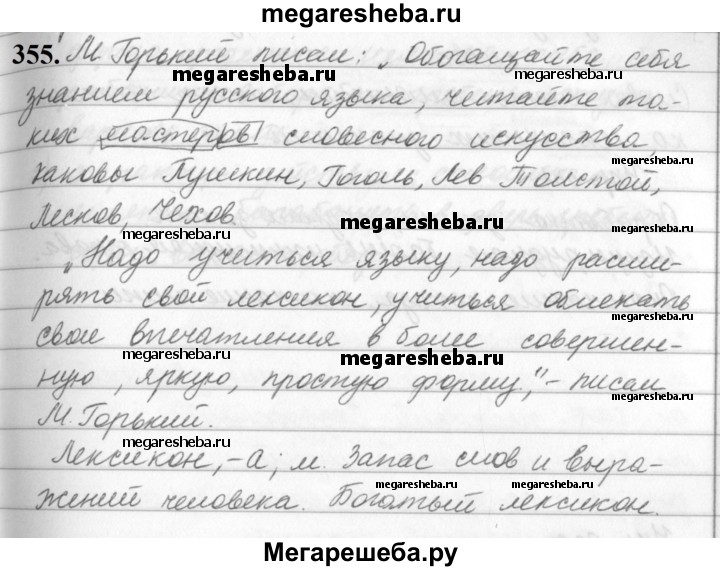 megaresheba.ru
355. М. Горький писал: „Обогащайте себя
megaresheba.ru
megaresheba.ru
знанием русского языка, читайте та-
ких мастеров словесного искусства,
megaresheba.ru
каковы Пушкин, Гоголь, Лев Толстой,
megaresheba.ru
Лесков, Чехов.
megaresheba.ru
„Надо учиться языку, надо расши-
megaresheba.ru
рять свой лексикон, учиться облекать
свои впечатления в более совершен-
megaresheba.ru
megaresheba.ru
ную, яркую, простую форму", – писал
М. Горький.
megaresheba.ru
Лексикон, -а; м. Запас слов и выра-
megaresheba.ru
megaresheba.ru
жений человека. Богатый лексикон.
Мегарешеба.ру